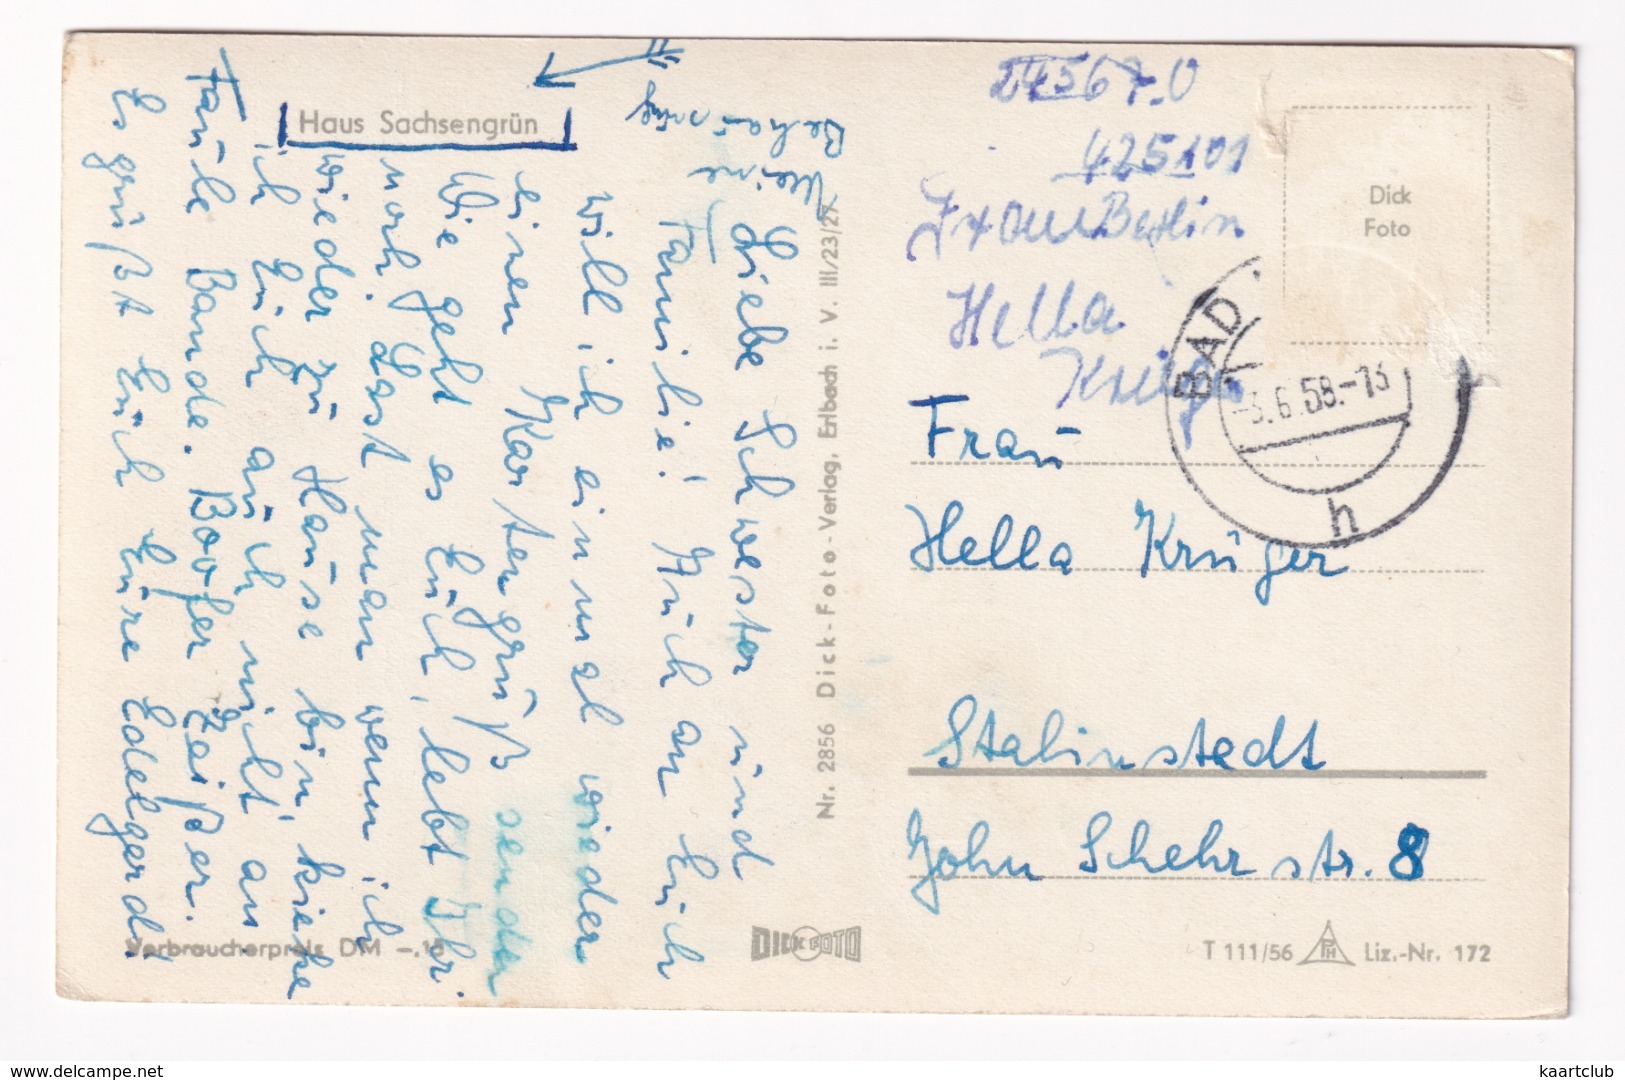 Haus Sachsengrün
Meine
Behausung
Liebe Schwester und
Familie! Auch an Euch
will ich einmal wieder
einen Kartengruß senden
Wie geht es Euch, lebt Ihr
noch. Last man wenn ich
wieder zu Hause bin, kieke
ich Euch auch nicht an.
Faule Bande. Boofer Zeißer.
Es grüßt Euch Eure Edelgard!
Verbraucherpreis DM -.15
Nr. 2856 Dick-Foto-Verlag, Erlbach i. V. III/23/27
DICK FOTO
24567.0
425101
Berlin
Hella
Krüge
Dick
Foto
BAD
-3.6.58.-13
h
Frau
Hella Krüger
Stalinstadt
John Schehr str. 8
T 111/56 PH Liz.-Nr. 172
delcampe.net
kaartclub